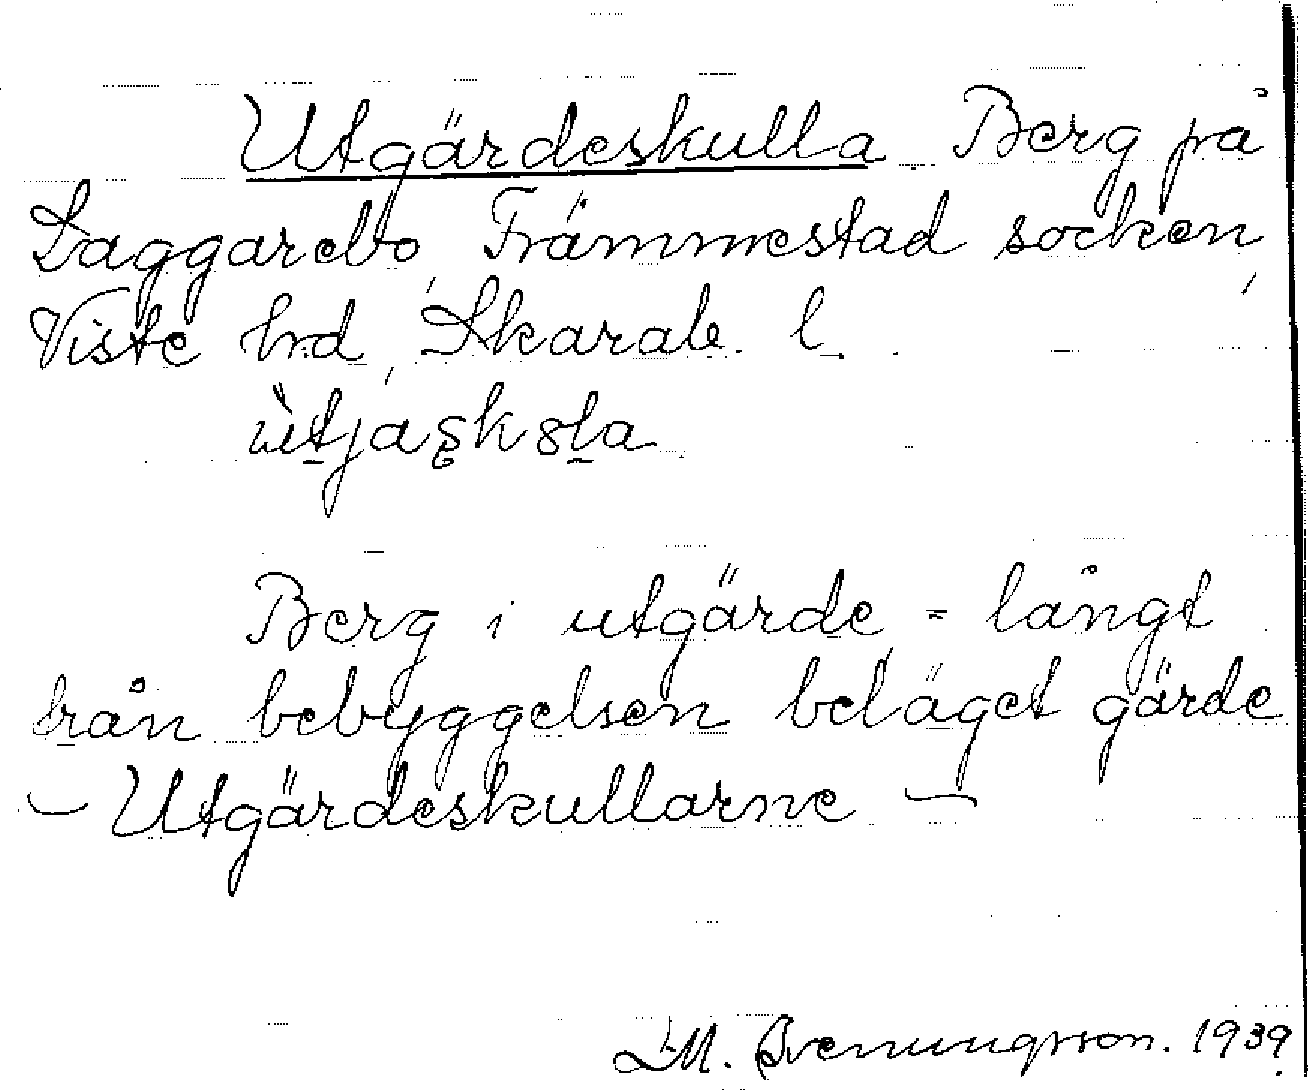 Utgärdeskulla Berg på
Daggarebo, Främmestad socken,
Viste hrd, Skarab. l.
Berg i utgärde, = långt
från bebyggelsen beläget gärde
– Utgärdeskullarne –
1939.